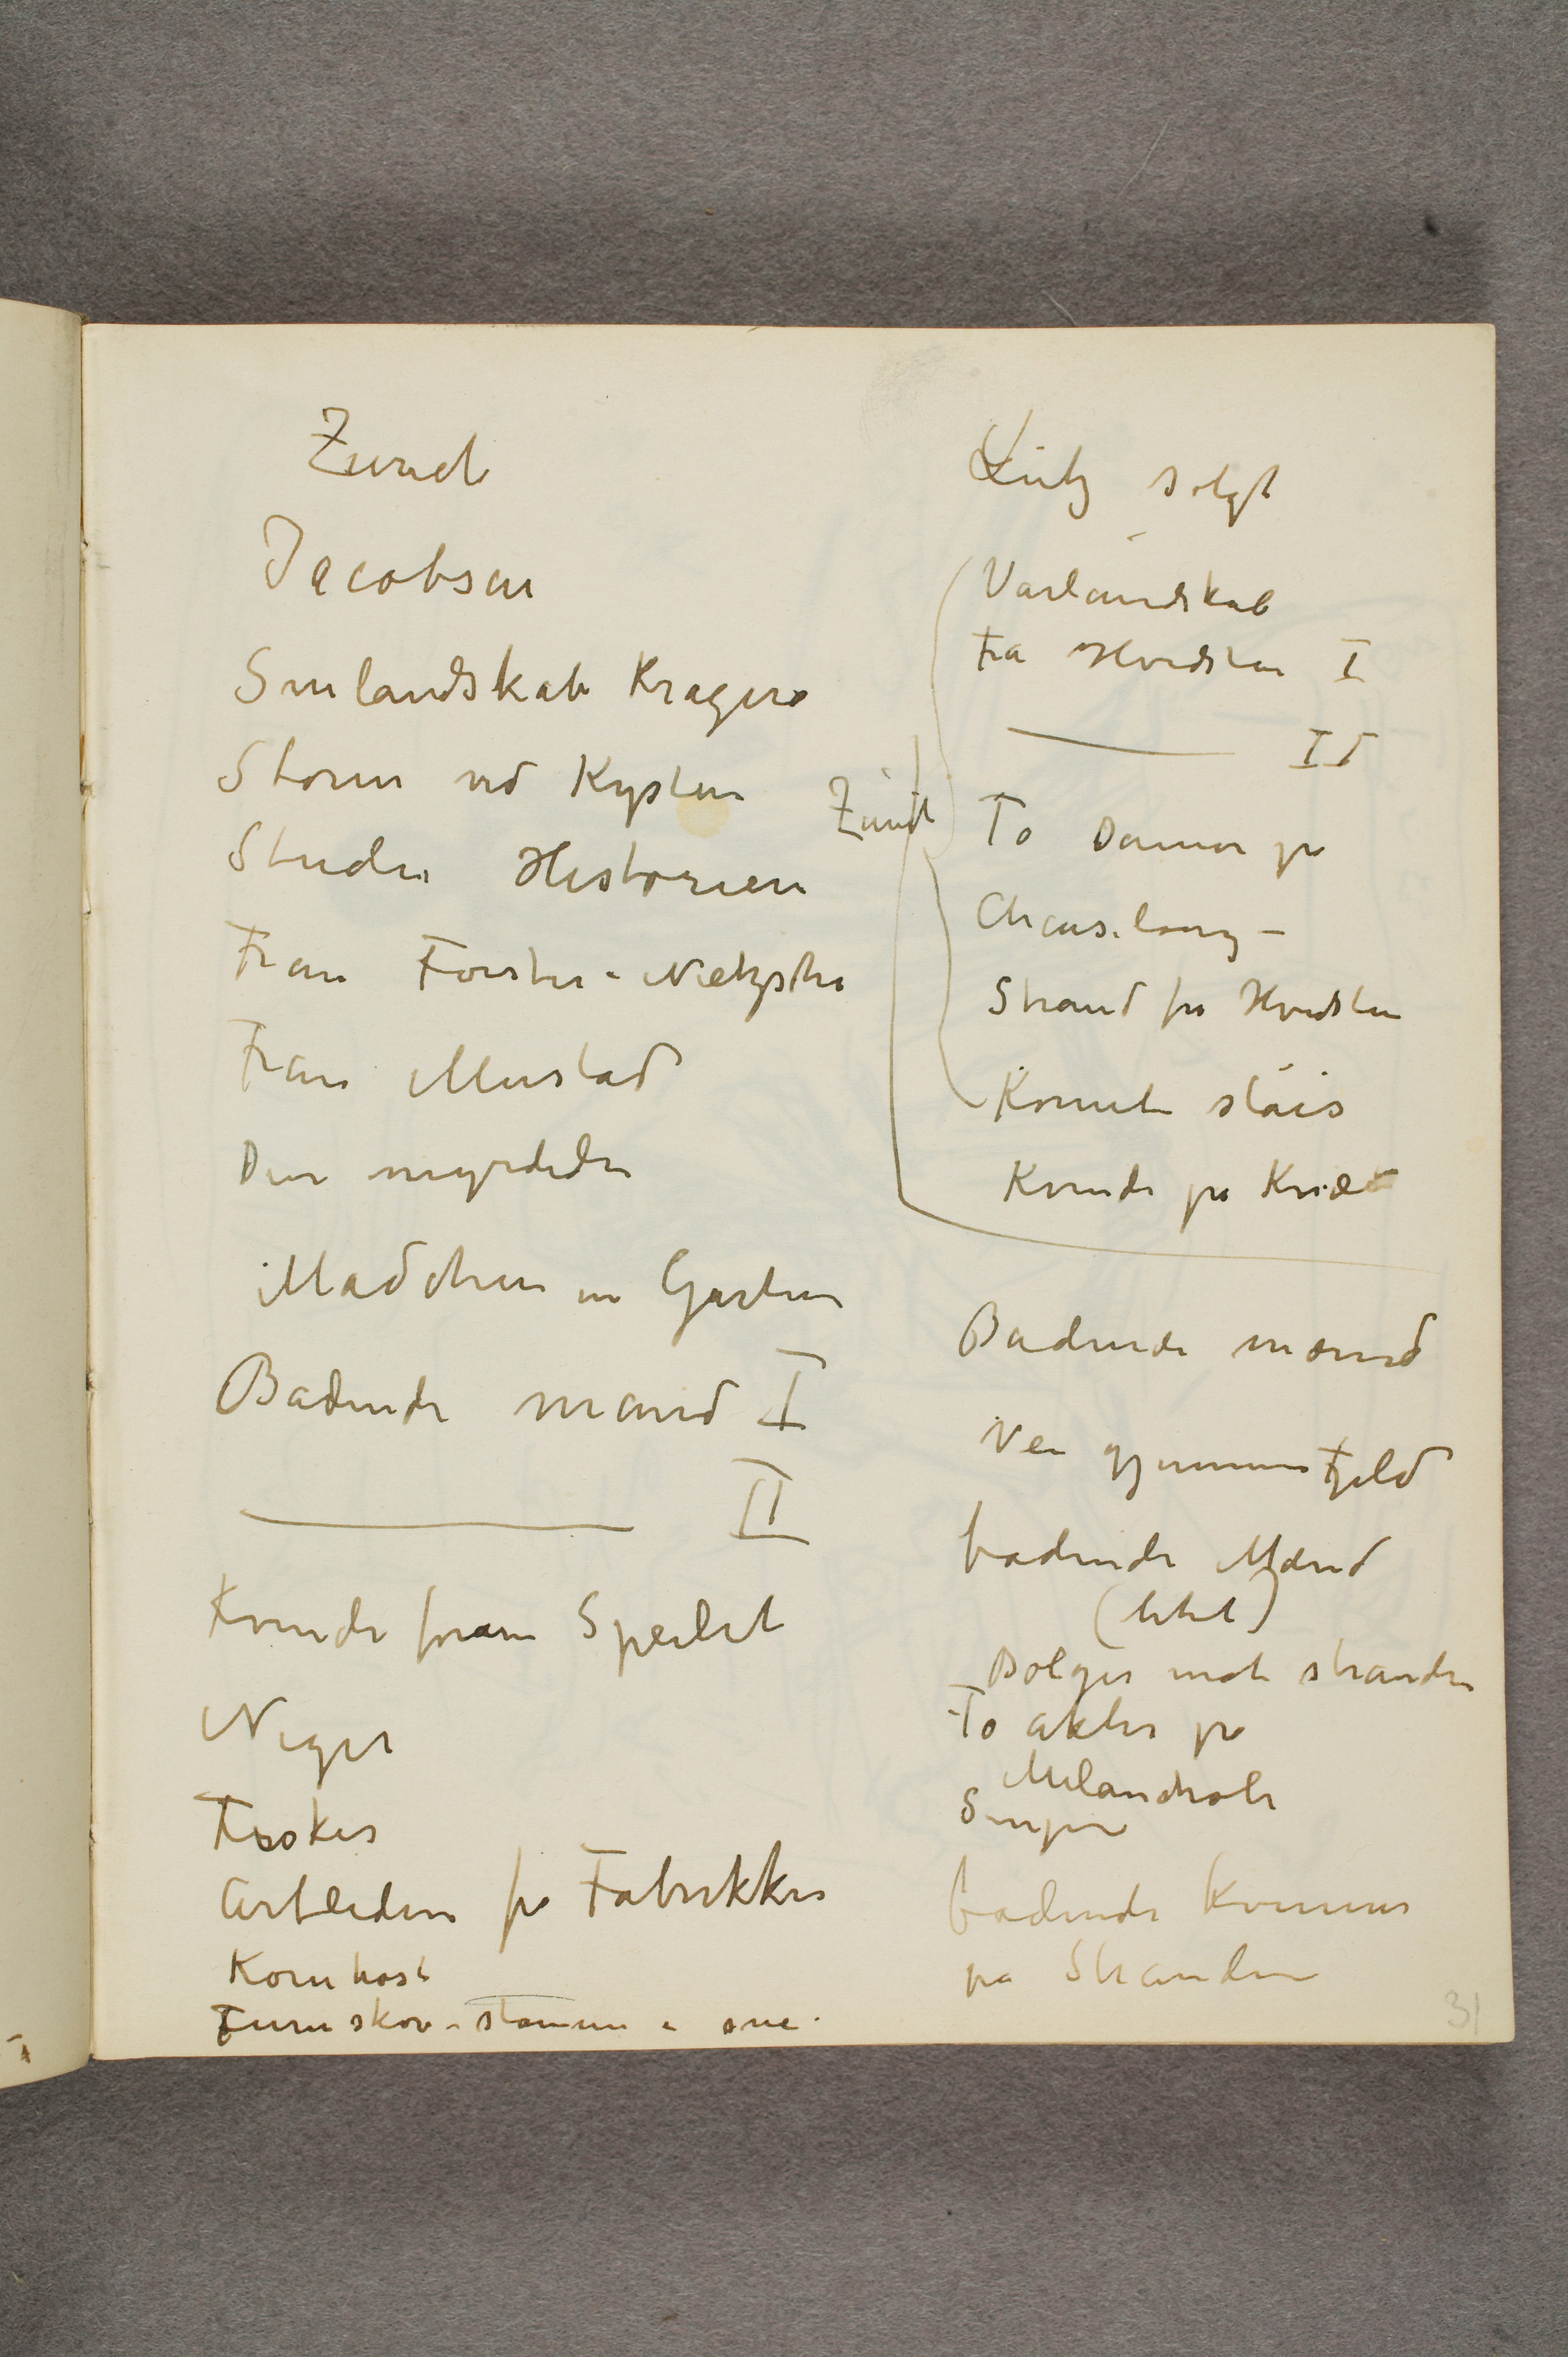 Zürich
Jacobsen
Snelandskab Kragerø
Storm ved Kysten
Studie Historien
Frau Förster-Nietzsche
Frau Mustad
Den myrdede
Mädchen im Garten
Badende mænd I
II
Kvinde foran Speilet
Neger
Fisker
Arbeidere fra Fabrikken
Kornhøst
Furuskov-stamme i sne
Lütz solgt
Vårlandskab
Fra Hvidsten I
II
Zürich
To Damer på
Chaiselong –
Strand fra Hvidsten
Kornet slåes
Kvinde på Knæ
Badende mænd
Vei gjennem Fjeld
badende Mænd
(litet)
Bølger mot stranden
To akter på
Melancholi
badende Kvinner
på Stranden
31